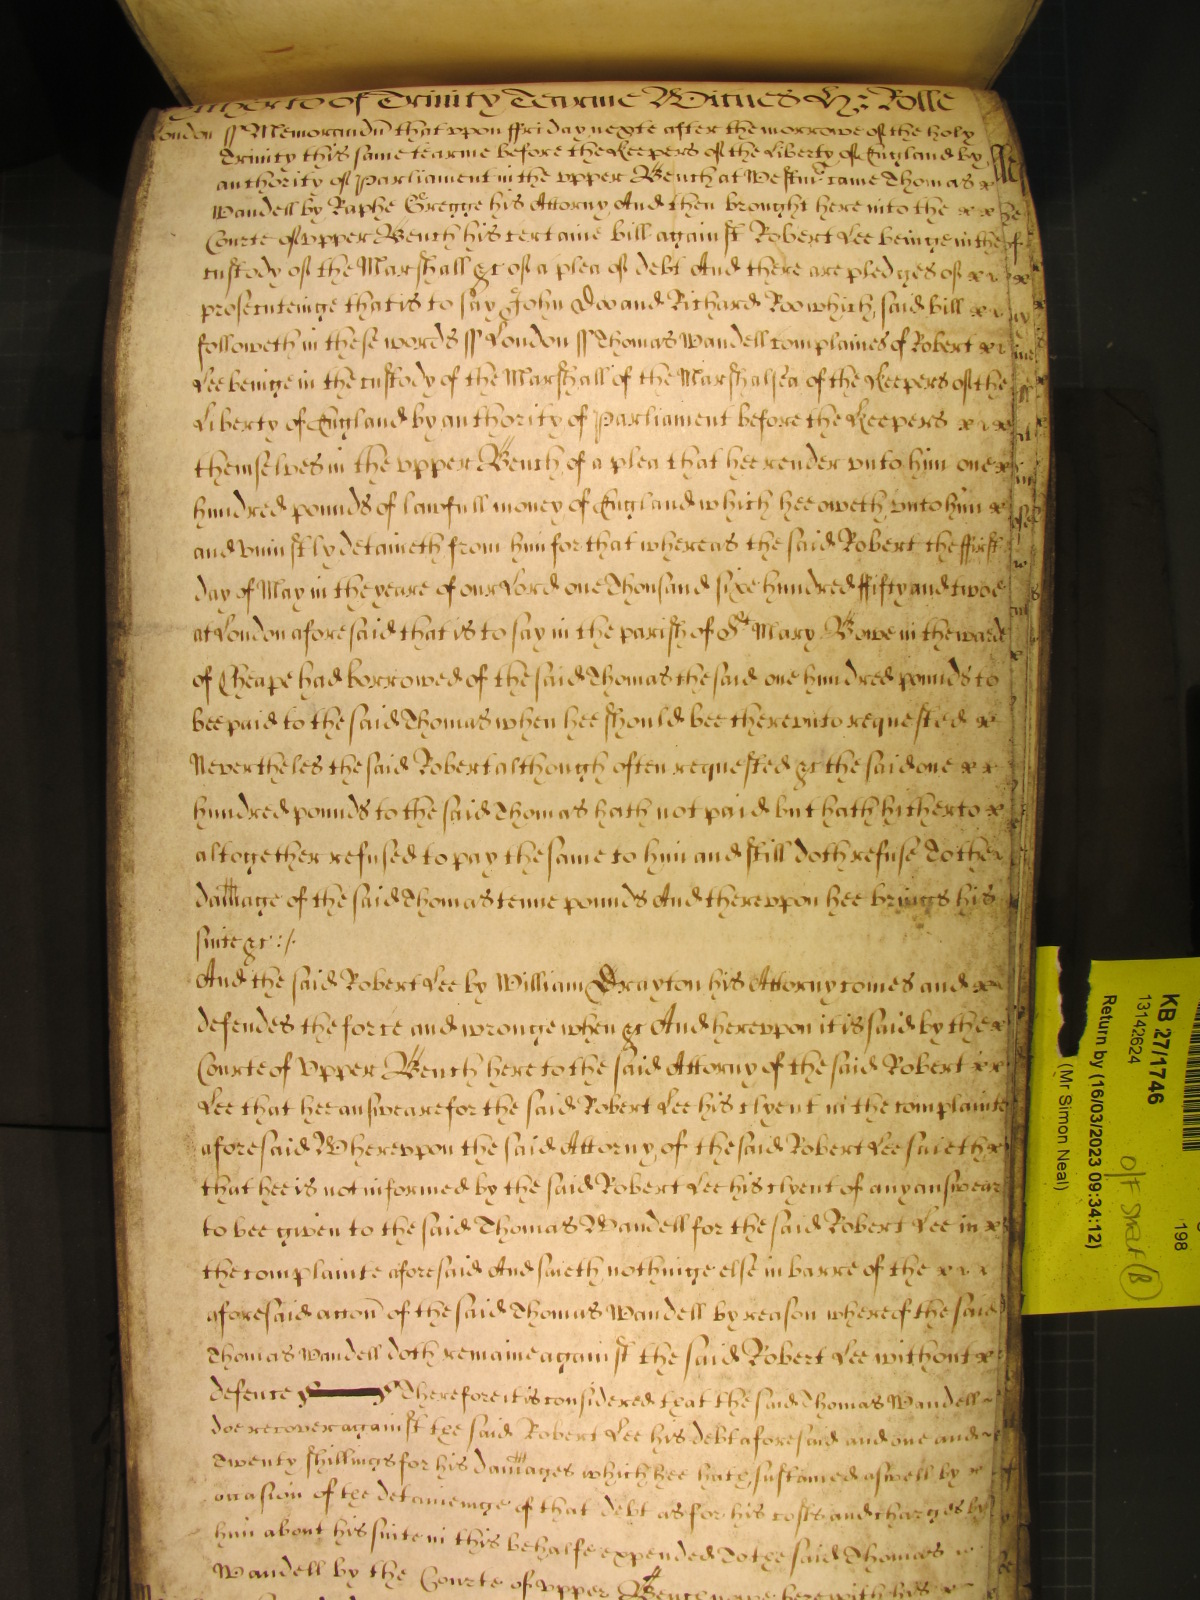 of Trinity Tearme Witnes H: Rolle
London ss Memorandū that vpon ffriday nexte after the morrowe of the holy
Trinity this same tearme before the Keepers of the Liberty of England by
authority of Parliament in the vpper Bench at Westmr came Thomas x
Wandell by Raphe Gregge his Attorny And then brought here into the x x
Courte of vpper Bench his certaine bill against Robert Lee beinge in the
custody of the Marshall &c of a plea of debt And there are pledges of x x
prosecuteinge that is to say John Doo and Richard Roo which said bill x x
followeth in these words ss London ss Thomas Wandell complaines of Robert x x
Lee beinge in the custody of the Marshall of the Marshalsea of the Keepers of the
Liberty of England by authority of Parliament before the Keepers x x x
themselves in the vpper Bench of a plea that hee render vnto him one x
hundred pounds of lawfull money of England which hee oweth vnto him x
and vniustly detaineth from him for that whereas the said Robert the ffirst
day of May in the yeare of our Lord one Thousand sixe hundred ffifty and twoe
at London aforesaid that is to say in the parish of St Mary Bowe in the warde
of Cheape had borrowed of the said Thomas the said one hundred pounds to
bee paid to the said Thomas when hee should bee therevnto requested x
Nevertheles the said Robert although often requested &c the said one x x
hundred pounds to the said Thomas hath not paid but hath hitherto x
altogether refused to pay the same to him and still doth refuse To the
damage of the said Thomas tenne pounds And therevpon hee brings his
suite &c :/.
And the said Robert Lee by William Drayton his Attorny comes and x
defendes the force and wronge when &c And herevpon it is said by the x
Courte of Vpper Bench here to the said Attorny of the said Robert x x
Lee that hee answeare for the said Robert Lee his clyent in the complainte
aforesaid Wherevpon the said Attorny of the said Robert Lee saieth x
that hee is not informed by the said Robert Lee his clyent of any answeare
to bee given to the said Thomas Wandell for the said Robert Lee in x
the complainte aforesaid And saieth nothinge else in barre of the x x x
aforesaid accōn of the said Thomas Wandell by reason whereof the said
Thomas Wandell doth remaine against the said Robert Lee without x
defence Therefore it is considered that the said Thomas Wandell
doe recover against the said Robert Lee his debt aforesaid and one and
Twenty shillings for his damages which hee hath sustained aswell by x
occasion of the detaineinge of that debt as for his costs and charges by
him about his suite in this behalfe expended To the said Thomas
Wandell by the Courte of vpper Bench nowe here with his x
KB 27/1746
13142624
Return by (16/03/2023 09:34:12)
(Mr Simon Neal)
198